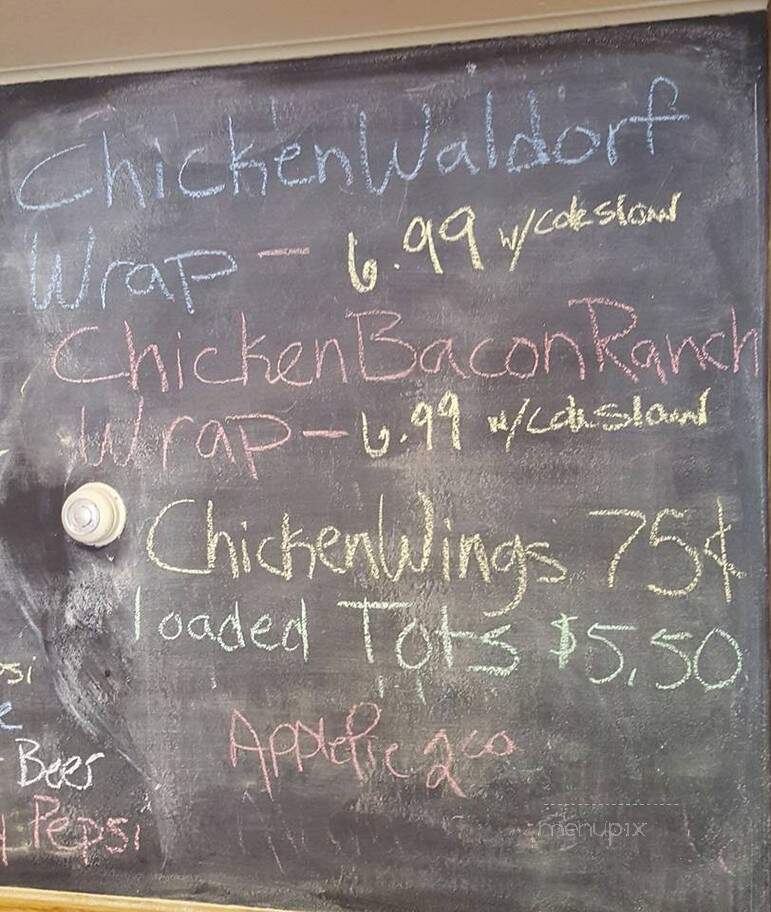 Chicken Waldorf
Wrap - 6.99 w/coleslaw
Chicken Bacon Ranch
Wrap - 6.99 w/coleslaw
Chicken Wings 75¢
loaded Tots $5.50
Apple Pie 2.00
Beer
Pepsi
menupix